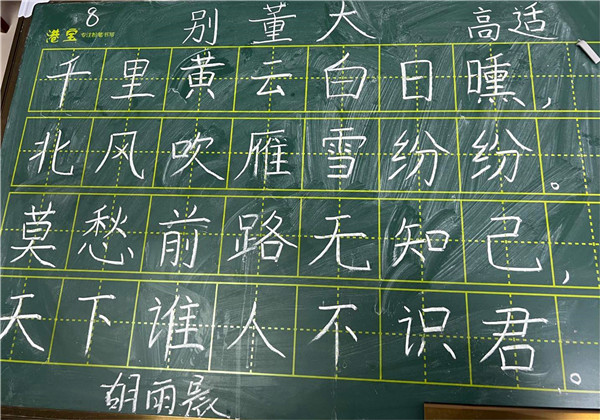 8 别董大 高适
港宝 专注好粉书写
千里黄云白日曛,
北风吹雁雪纷纷。
莫愁前路无知己,
天下谁人不识君。
胡雨晨